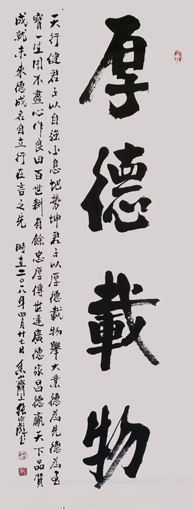 厚德載物
天行健君子以自强不息地势坤君子以厚德载物舉大業德為先德為至
寶一生用不盡心作良田百世耕有餘忠厚傳世遠廣德家昌德贏天下品質
成就未來德成名自立行在言之先 時在二〇一八年四月廿七日